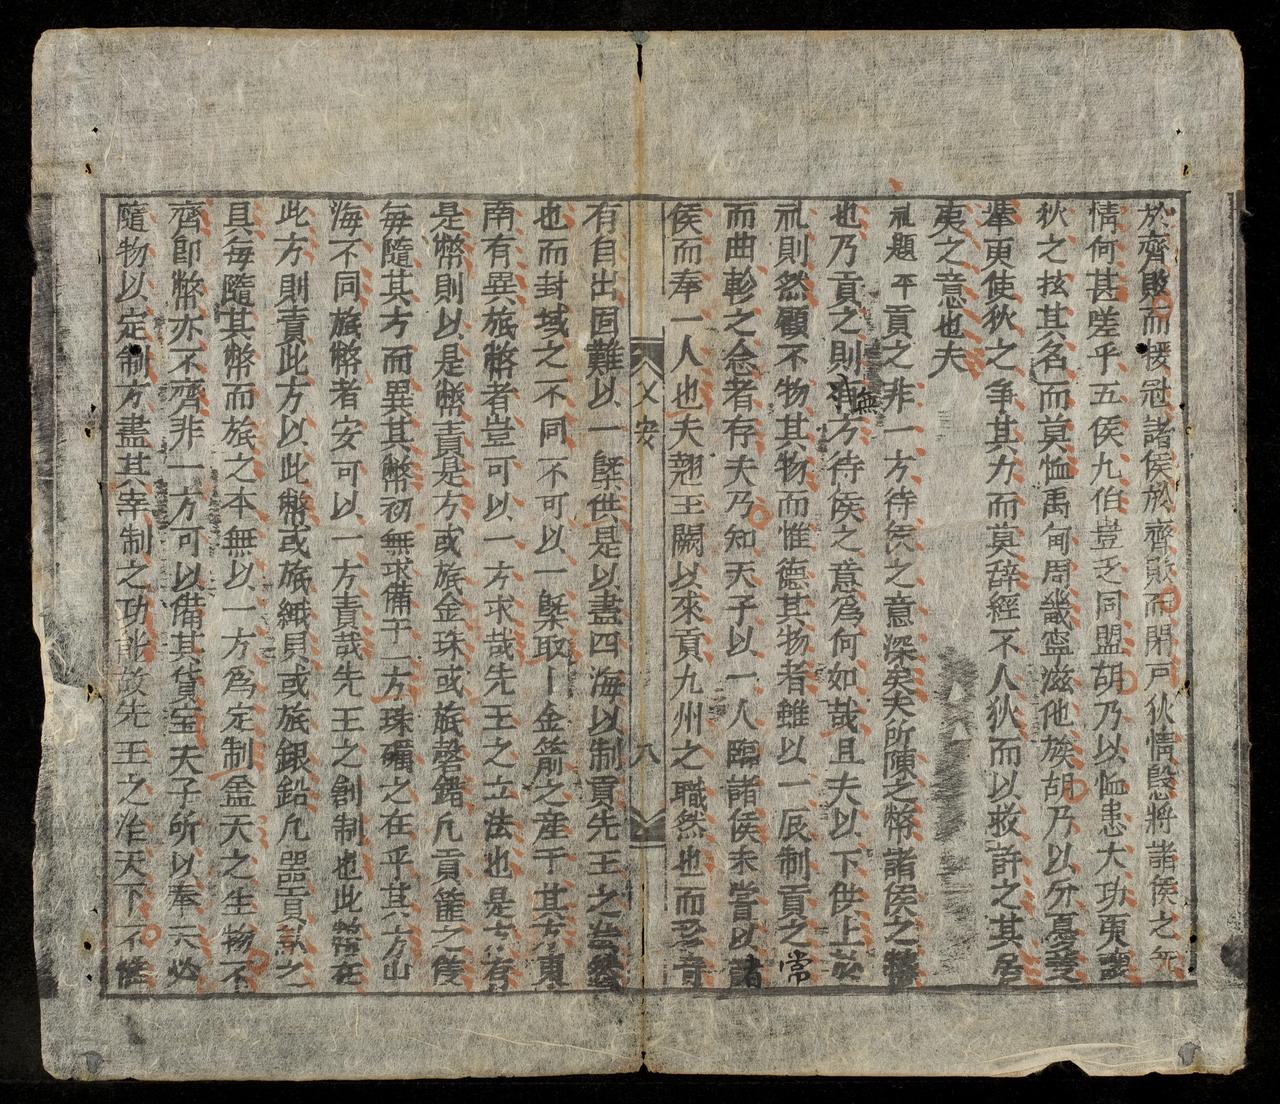 於齊敗而援冠諸侯於齊敗而閉戶狄情慇將諸侯之
情何甚嗟乎五侯九伯豈乏同盟胡乃以恤患大功東
狄之挍其名而莫恤禹甸周畿寧滋他族胡乃以分憂
擧更使狄之爭其力而莫辞經不人狄而以救許之其居
夷之意也夫
礼題平貢之非一方待矦之意深矣夫所陳之幣諸侯之
也乃貢之則無方待侯之意爲何如哉且夫以下供上
礼則然顧不物其物而惟德其物者雖以一辰制貢之常
而曲軫之念者存夫乃知天子以一人臨諸侯未嘗以諸
侯而奉一人也夫翘王闕以來貢九州之職然也而
乂安 八
有自出固難以一槩供是以盡四海以制貢先王之
也而封域之不同不可以一槩取金箭之産于其方東
南有異旅幣者豈可以一方求哉先王之立法也是方有
是幣則以是幣責是方或旅金珠或旅磬錯凡貢篚之
每隨其方而異其幣初無求備于一方珠礪之在乎其方山
海不同旅幣者安可以一方責哉先王之創制也此幣在
此方則責此方以此幣或旅纖貝或旅銀鉛凡器貢之
具每隨其幣而旅之本無以一方爲定制盖天之生物不
齊即幣亦不齊非一方可以備其貨宝天子所以奉天必
隨物以定制方盡其宰制之功能故先王之治天下不